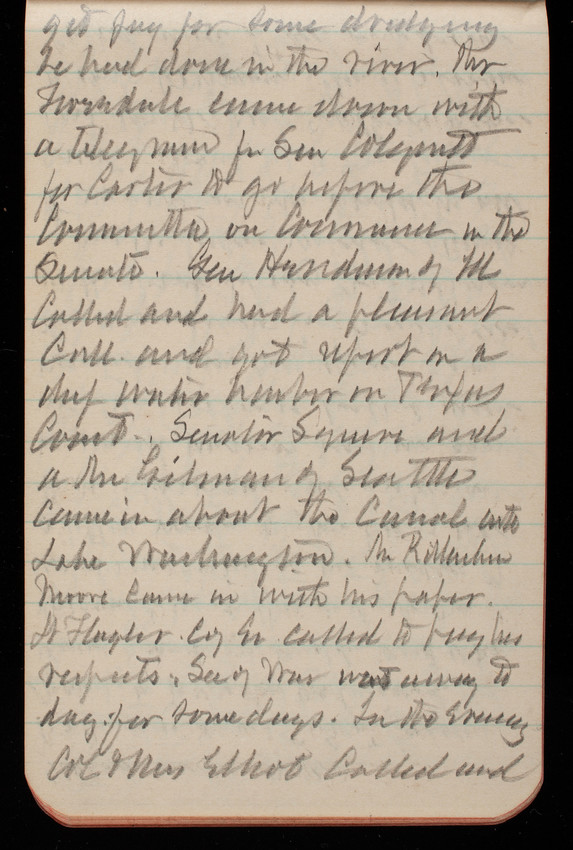 get pay for some dredging
he had done in the river. Mr
Truesdale came down with
a telegram fr Sen Colquitt
for Carter to go before the
Committee on Commerce in the
Senate. Gen Henderson of Ill
Called and had a pleasant
Call and got report on a
deep water harbor on Texas
Coast. Senator Squire and
a Mr Gilman of Seattle
came in about the Canal into
Lake Washington. Mr
Moore came in with his paper.
Lt Flagler. C of En called to pay his
respects. Sec of War went away to
day for some days. In the Evening
Col & Mrs Elliot Called and